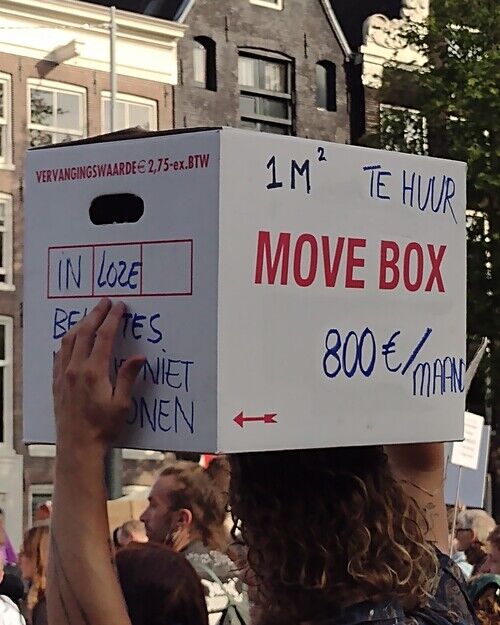 VERVANGINGSWAARDE € 2,75-ex.BTW
IN LOZE
NIET
1M² TE HUUR
MOVE BOX
800€/MAAND